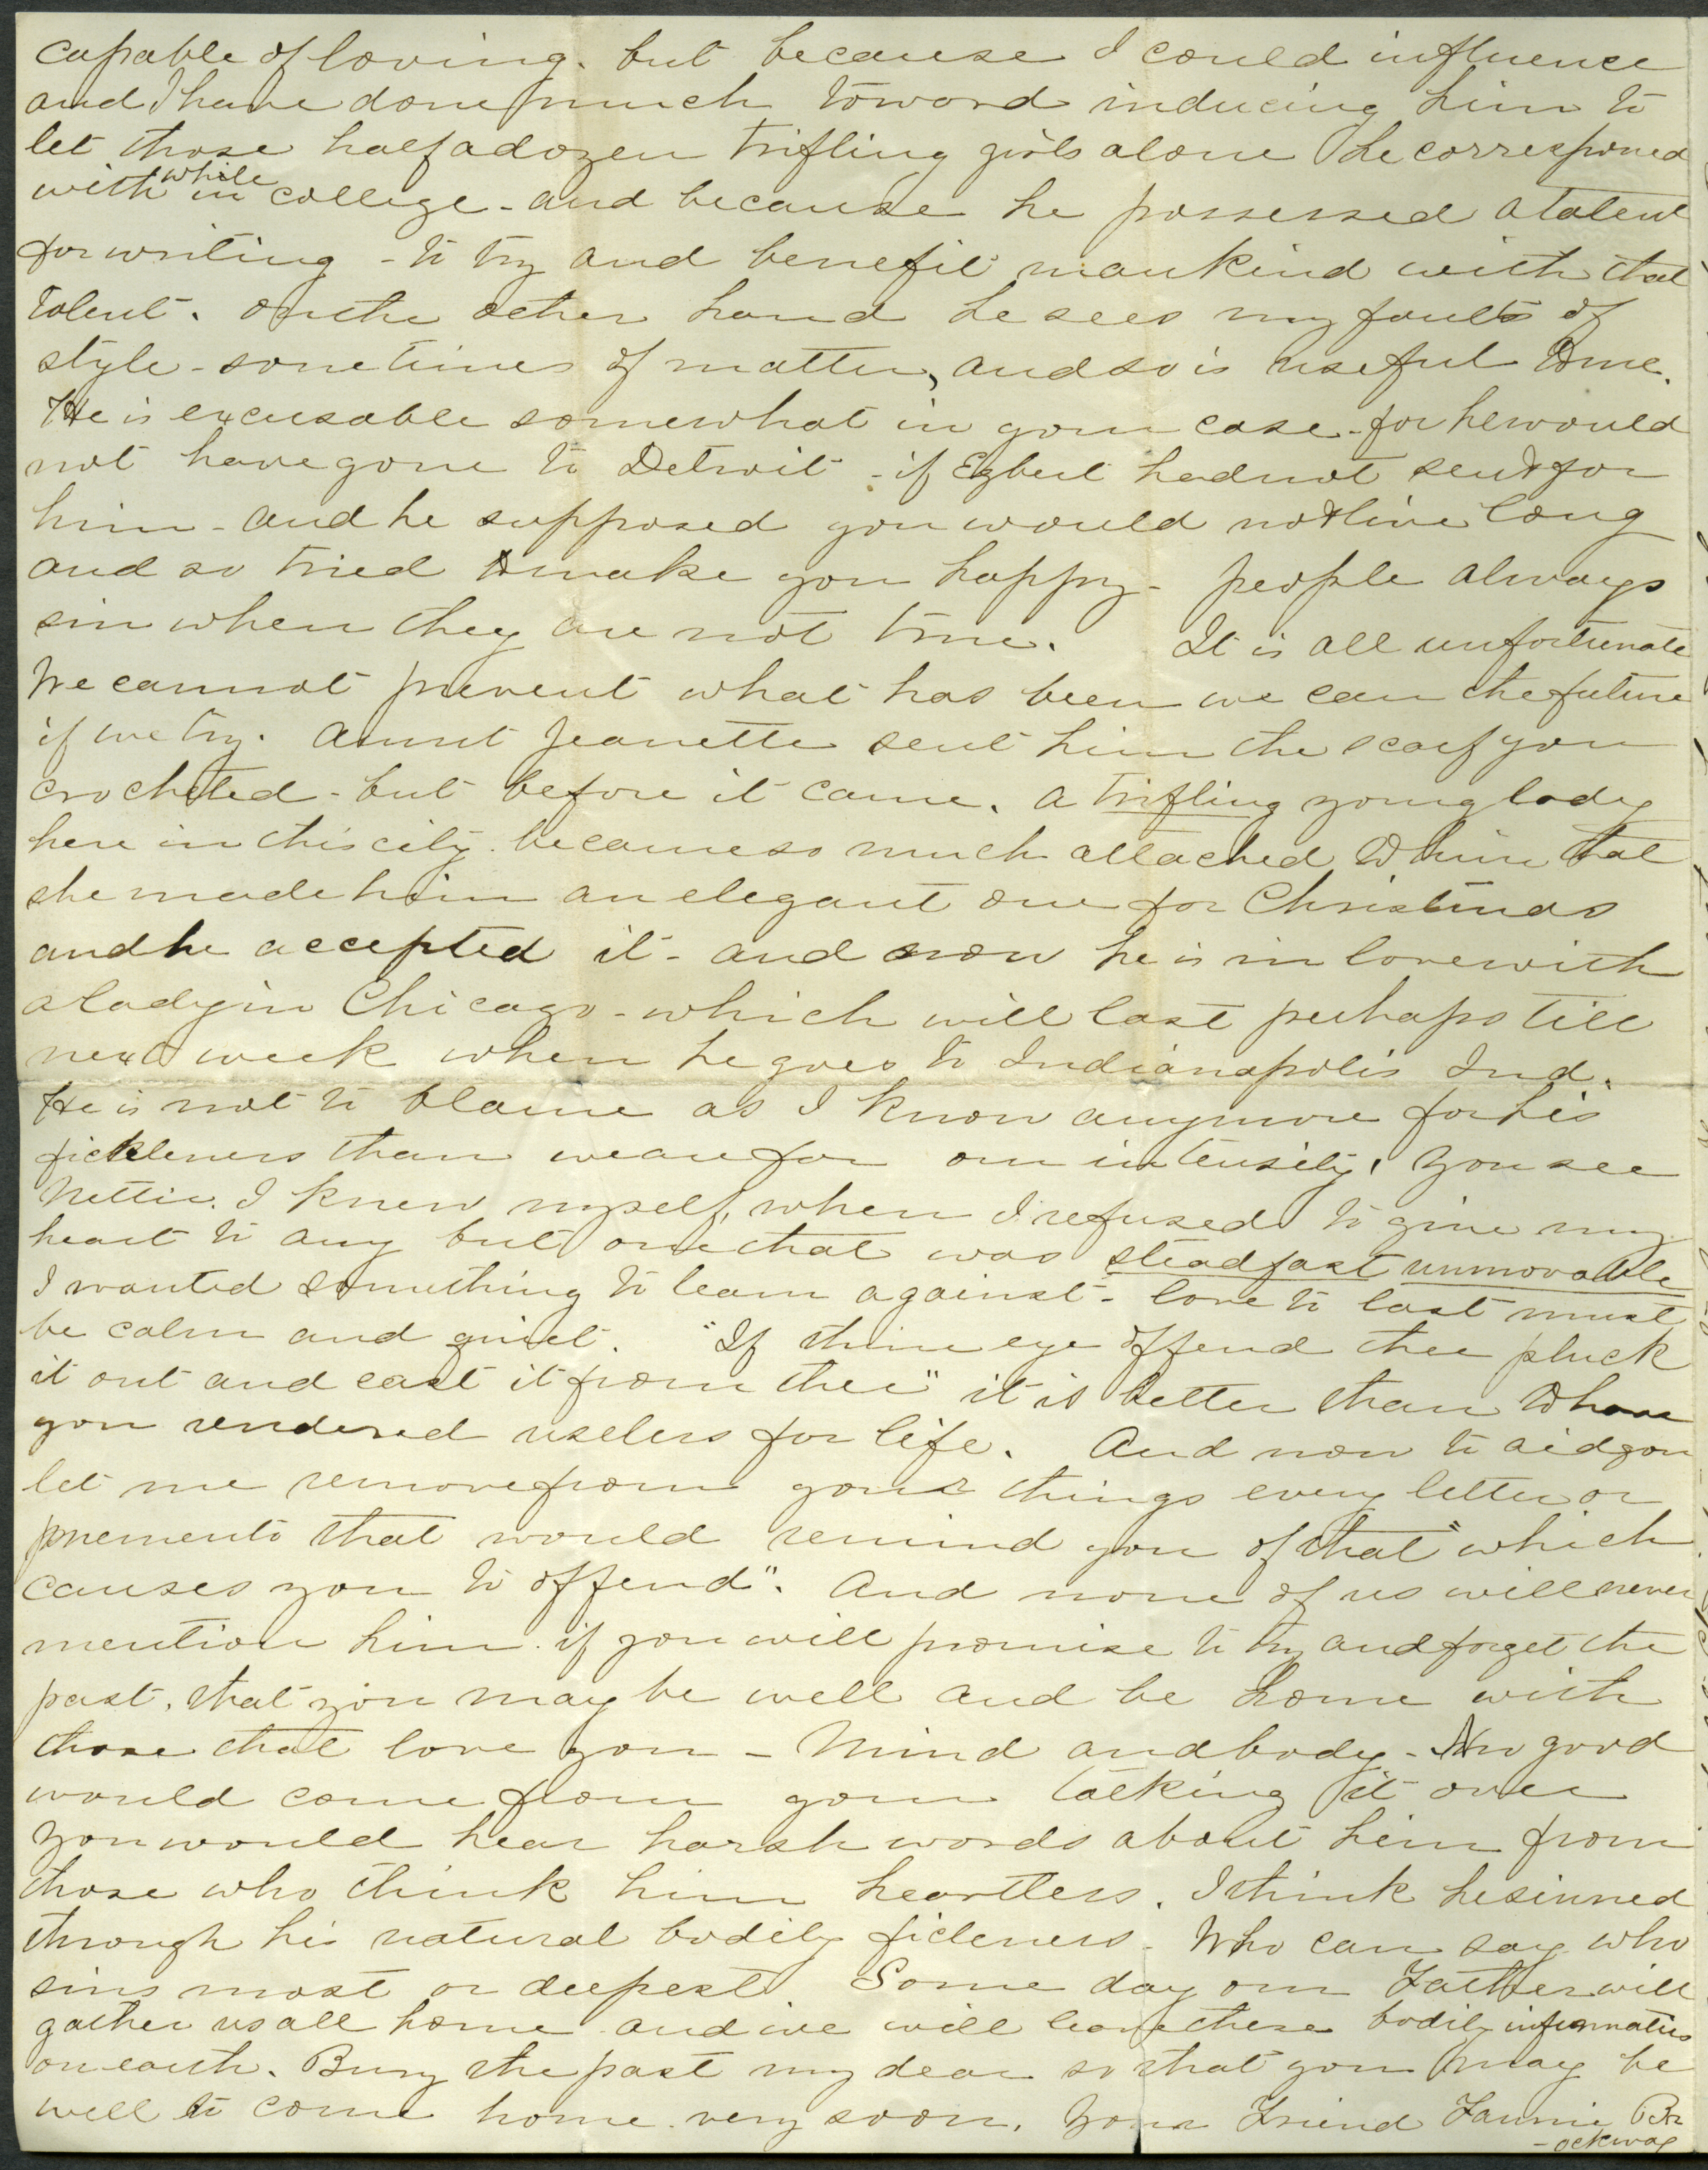 capable of loving. but because I could influence
and I have done much toward inducing him to
let those half a dozen trifling girls alone he correspond
with while in college - and because he possessed a talent
for writing - to try and benefit mankind with that
talent. On the other hand he sees my faults of
style - sometimes of matter, and so is useful to me.
He is excusable somewhat in your case - for he would
not have gone to Detroit - if Egbert had not sent for
him - and he supposed you would not live long
and so tried to make you happy - people always
sin when they are not true. It is all unfortunate
We cannot prevent what has been we can the future
if we try. Aunt Jeanette sent him the scarf you
crocheted - but before it came. a trifling young lady
here in this city. became so much attached to him that
she made him an elegant one for Christmas
and he accepted it - and now he is in love with
a lady in Chicago - which will last perhaps till
next week when he goes to Indianapolis Ind.
He is not to blame as I know anymore for his
fickleness than we are for our intensity. You see
Nettie. I knew myself, when I refused to give my
heart to any but one that was steadfast unmovable
I wanted something to lean against - love to last must
be calm and quiet. "If thine eye offend thee pluck
it out and cast it from thee" it is better than to have
you rendered useless for life. And now to aid you
let me remove from your things every letter or
momento that would remind you of that "which
causes you to offend". And none of us will never
mention him. if you will promise to try and forget the
past, that you may be well and be home with
those that love you - Mind and body - No good
would come from your talking it over
you would hear harsh words about him from
those who think him heartless. I think he sinned
through his natural bodily ficleness. Who can say who
sins most or deepest. Some day our Father will
gather us all home and we will leave these bodily infirmaties
on earth. Bury the past my dear so that you may be
well to come home very soon. Your Friend Fannie Br
-ockway